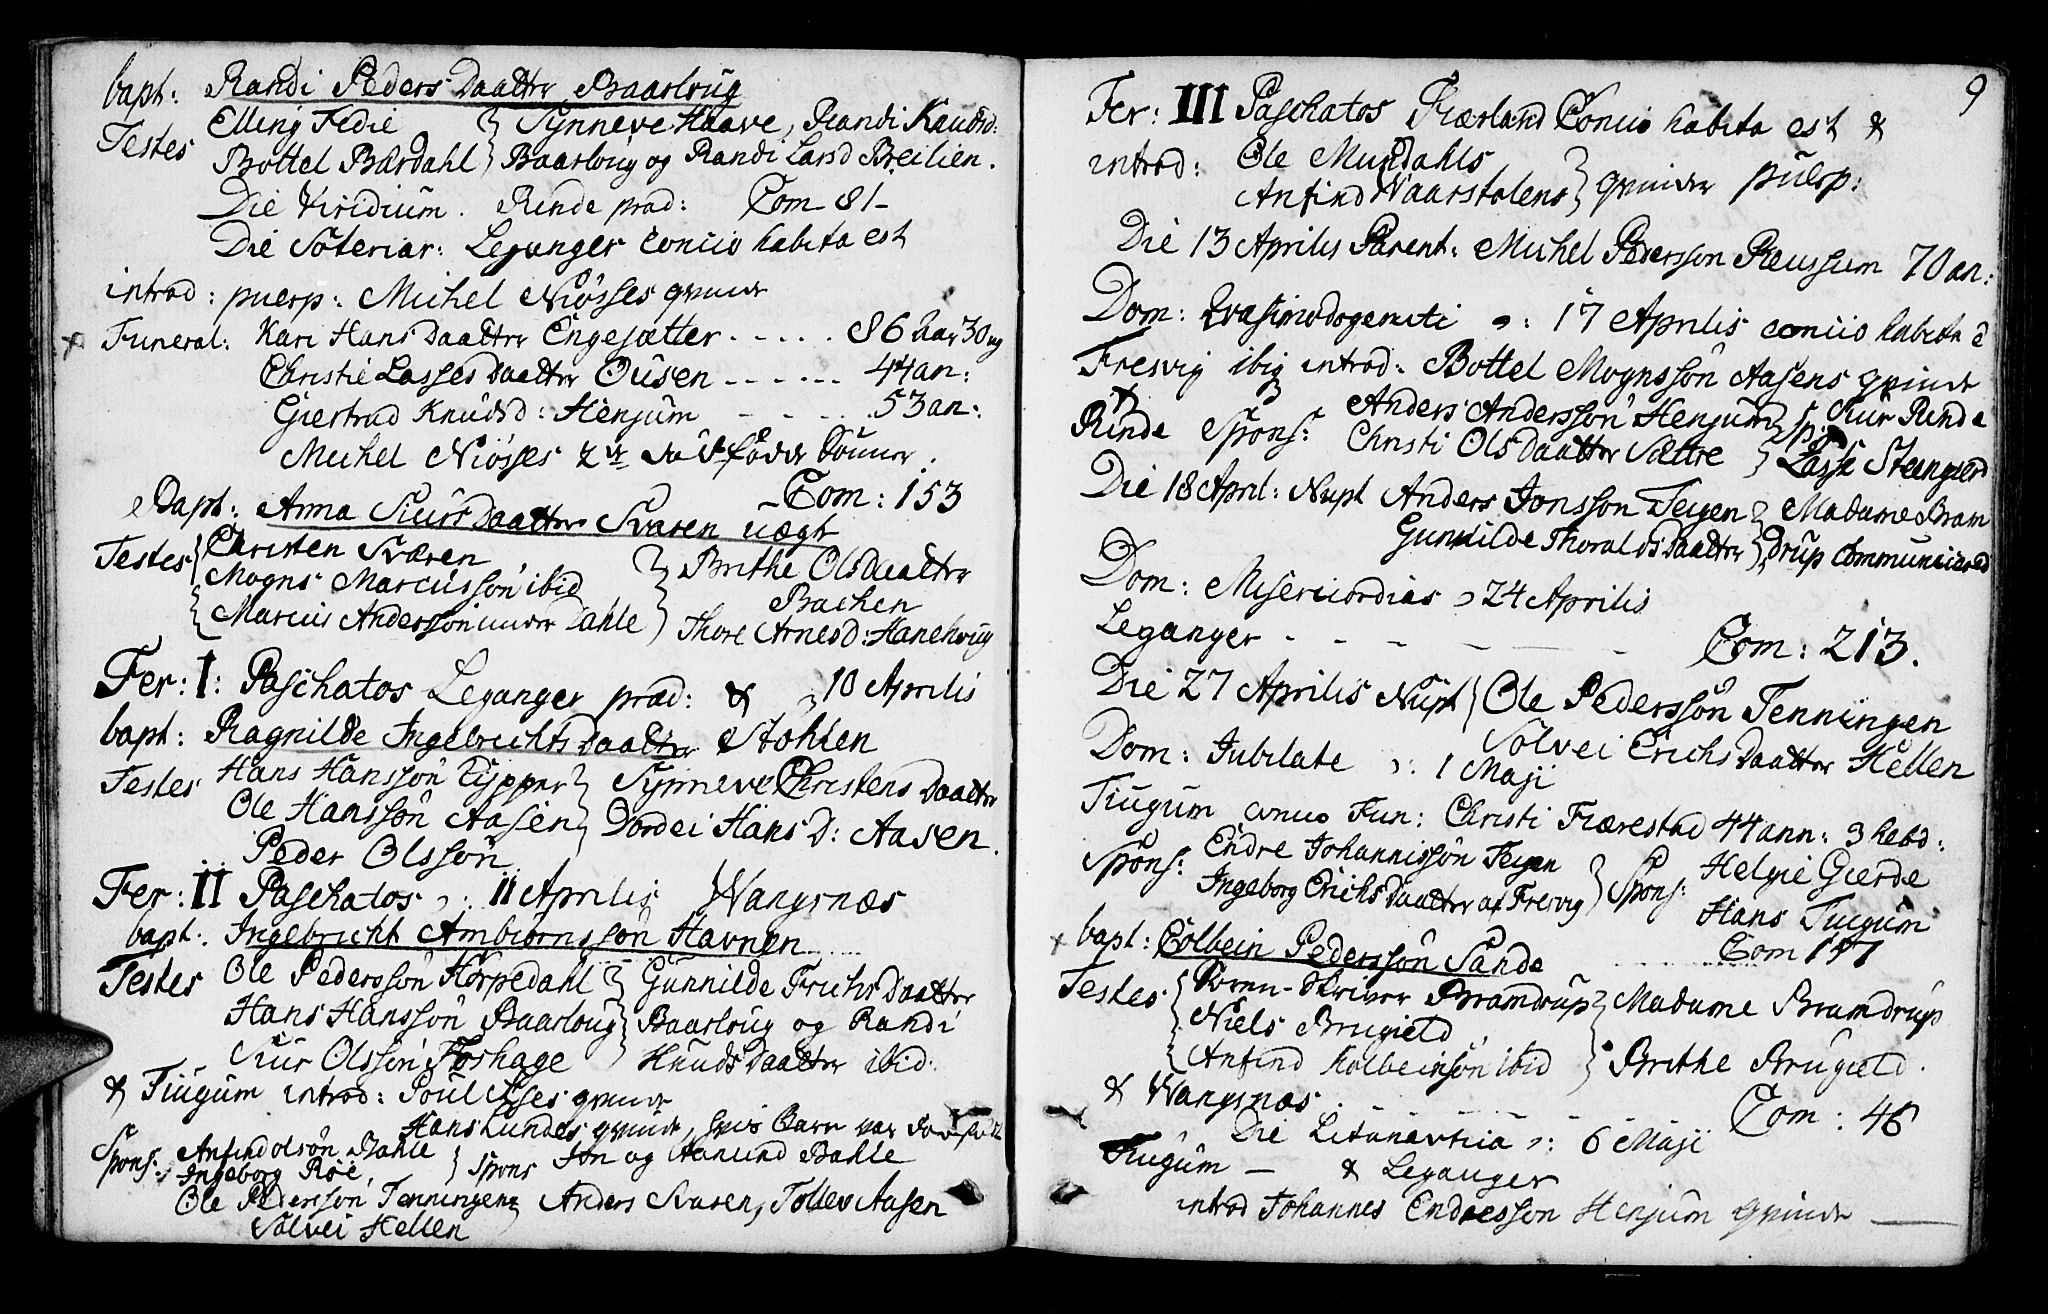 bapt: Randi Peders Daatter Baarloug
Testes Elling Fedie } Synneve Haave, Randi Knudsd:
Bottel Bærdahl } Baarloug og Randi Larsd Breilien.
Die Viridium. Rinde præd: Com 81-
Die Soteriar: Leganger concio habita est
introd: puerp: Michel Niøsses qvinde
Funeral: Kari Hans Daatter Engesætter - - - - - 86 aar 30 ug
Christie Lasses Daatter Ousen - - - - - - 44 an:
Giertrud Knudsd: Henjum - - - - - 53 an:
Michel Niøsses 2de fødde Sønner.
Com: 153
Bapt: Anna Siurs Daatter Sværen uægt
Testes { Christen Sværen } Brithe Ols Daatter
Mogns Marcussøn ibid } Bachen
Marcus Anderssøn Dahle } Thore Arnesd: Hanehoug
Fer: I: Paschatos Leganger præd: & ɔ: 10 Aprilis
bapt: Ragnilde Ingebrichts Daatter Støhlen
Testes Hans Hanssøn } Synneve Christens Daatter
Ole Hanssøn Aasen } Dordei Hans D: Aasen.
Peder Olssøn
Fer: II Paschatos ɔ: 11 Aprilis Wangsnæs
bapt: Ingebricht Ambiørnssøn Havnen
Testes Ole Pederssøn Hørpedahl } Gunnilde Frichs Daatter
Hans Hanssøn Baarloug } Baarloug og Randi
Siur Olssøn Foshage } Knuds Daatter ibid:
& Tiugum introd: Poul qvinde
Hans Lundes qvinde, hvis Barn var
Spons: Anfind Olsøn Dahle } Spons Jon og Aamund Dahle
Ingeborg Røe,
Ole Pederssøn Tenningen } Anders Sværen, Tollev Aasen
Solvei Hellen
9
Fer: III Paschatos Fiærland Concio habita est &
introd: Ole Mundahls } qvinder puerp:
Anfind Vaarstølens }
Die 13 Aprilis Parent: Michel Pederssøn Reussum 70 an:
Dom: Qvasimodogeniti ɔ: 17 Aprilis concio habita ē
Fresvig ibiq introd: Bottel Mognssøn Aasens qvinde
Rinde Spons: Anders Anderssøn Henjum } sp: Siur Rinde
Christi Ols Daatter Sættre } Lasse Steengierd
Die 18 April: Nupt Anders Jonssøn Teigen } Madame Bram
Gunnilde Thoralds Daatter } drup Communicered
Dom: Misericordias ɔ 24 Aprilis
Leganger - - - - - Com: 213.
Die 27 Aprilis Nupt { Ole Pederssøn Tenningen
Solvei Erichs Daatter Hellen
Dom: Jubilate ɔ: 1 Maji
Tiugum concio Fun: Christi Fiærestad 44 ann: 3 hebd:
Spons: Endre Johannissøn Teigen } Spons: Helgie Gierde
Ingeborg Erichs Daatter af Fresvig } Hans Tiugum
Com 147
bapt: Colbein Pederssøn Sande
Testes { Soren-Skriver Bramdrup } Madame Bramdrup
Niels Brugield
Anfind Kolbeinsøn ibid } Brithe Brugield.
& Wangsnæs - - - - - Com: 46
Die Litaneutica ɔ: 6 Maji
Tiugum - & Leganger
introd Johannes Endressøn Henjum qvinde